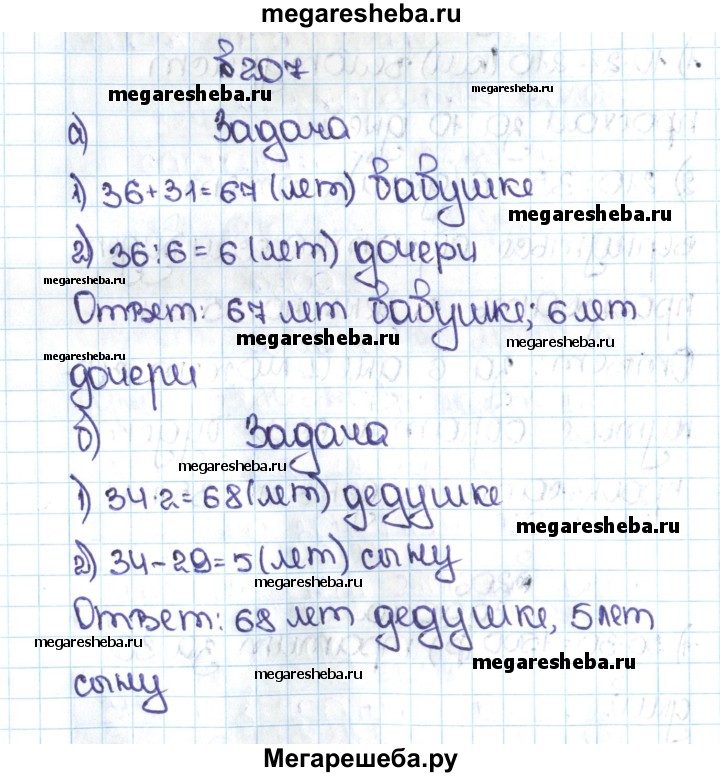 megaresheba.ru
№ 207
megaresheba.ru
megaresheba.ru
а) Задача
1) 36+31=67 (лет) бабушке
megaresheba.ru
2) 36:6=6 (лет) дочери
megaresheba.ru
Ответ: 67 лет бабушке; 6 лет
megaresheba.ru
megaresheba.ru
дочери
б) Задача
megaresheba.ru
1) 34·2=68 (лет) дедушке
megaresheba.ru
2) 34-29=5 (лет) сыну
megaresheba.ru
Ответ: 68 лет дедушке, 5 лет
megaresheba.ru
megaresheba.ru
megaresheba.ru
сыну
Мегарешеба.ру